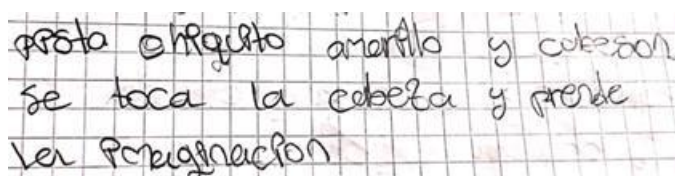 pista chiquito amarillo y cabeson
se toca la cabeza y prende
la imaginacion